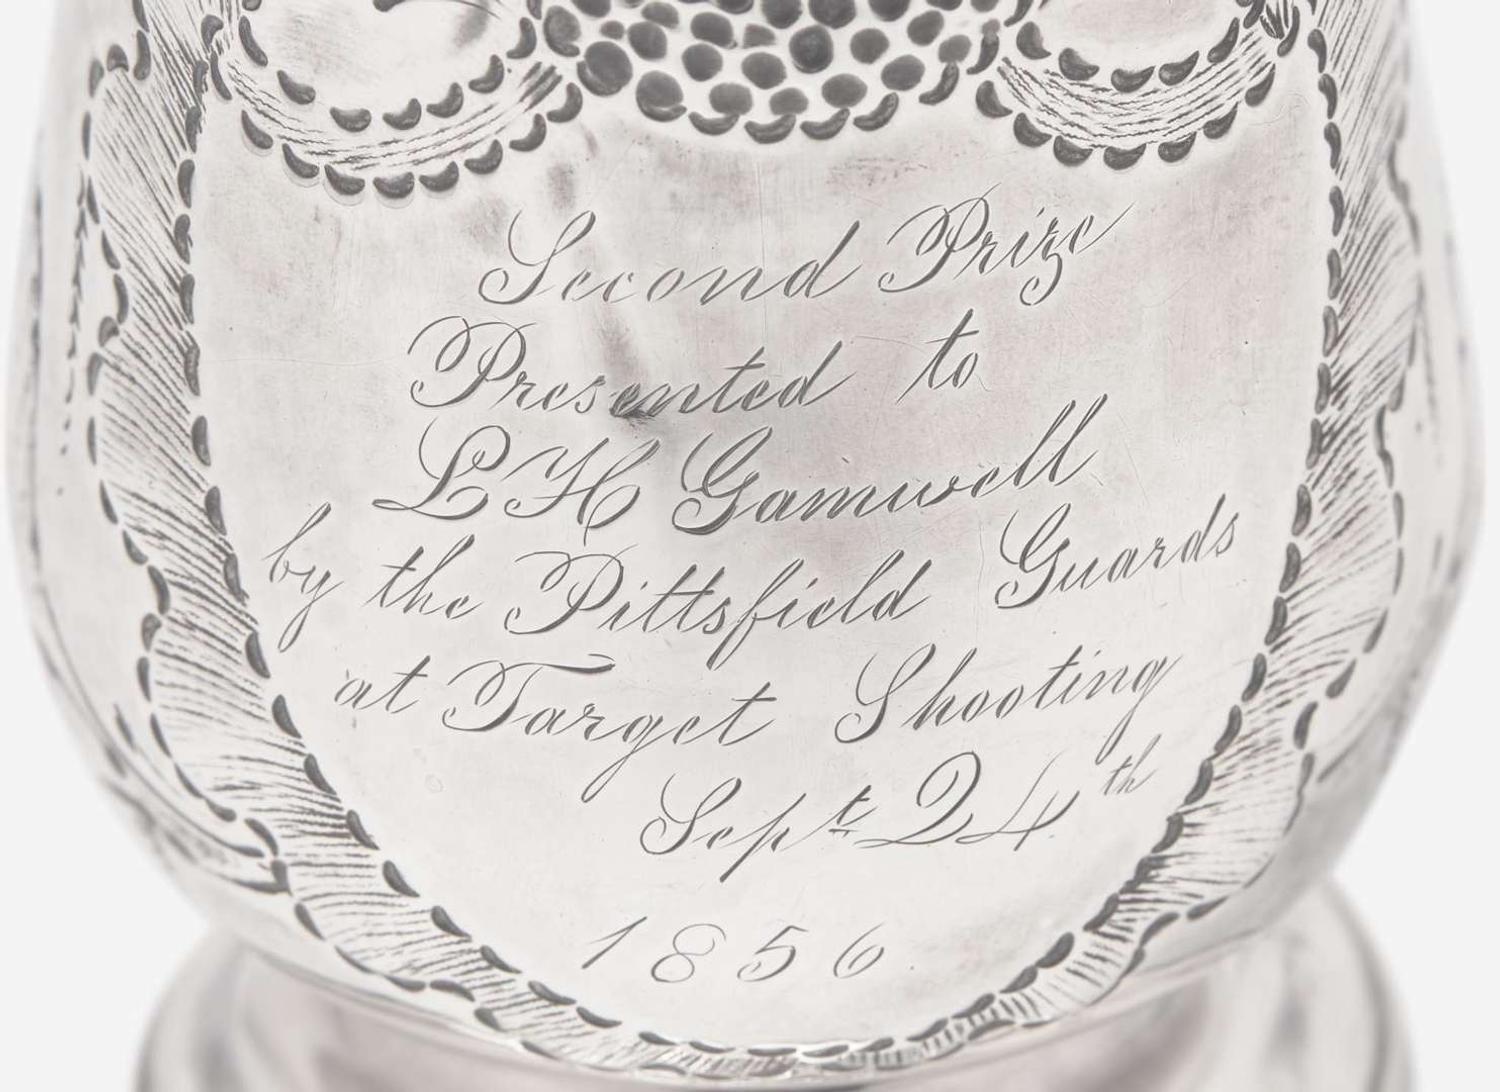 Second Prize
Presented to
L H Gamwell
by the Pittsfield Guards
at Target Shooting
Sept 24th
1856